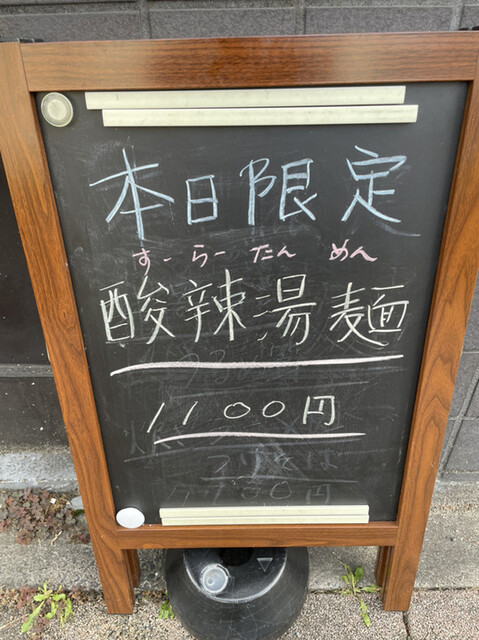 本日限定
すーらーたんめん
酸辣湯麺
1100円